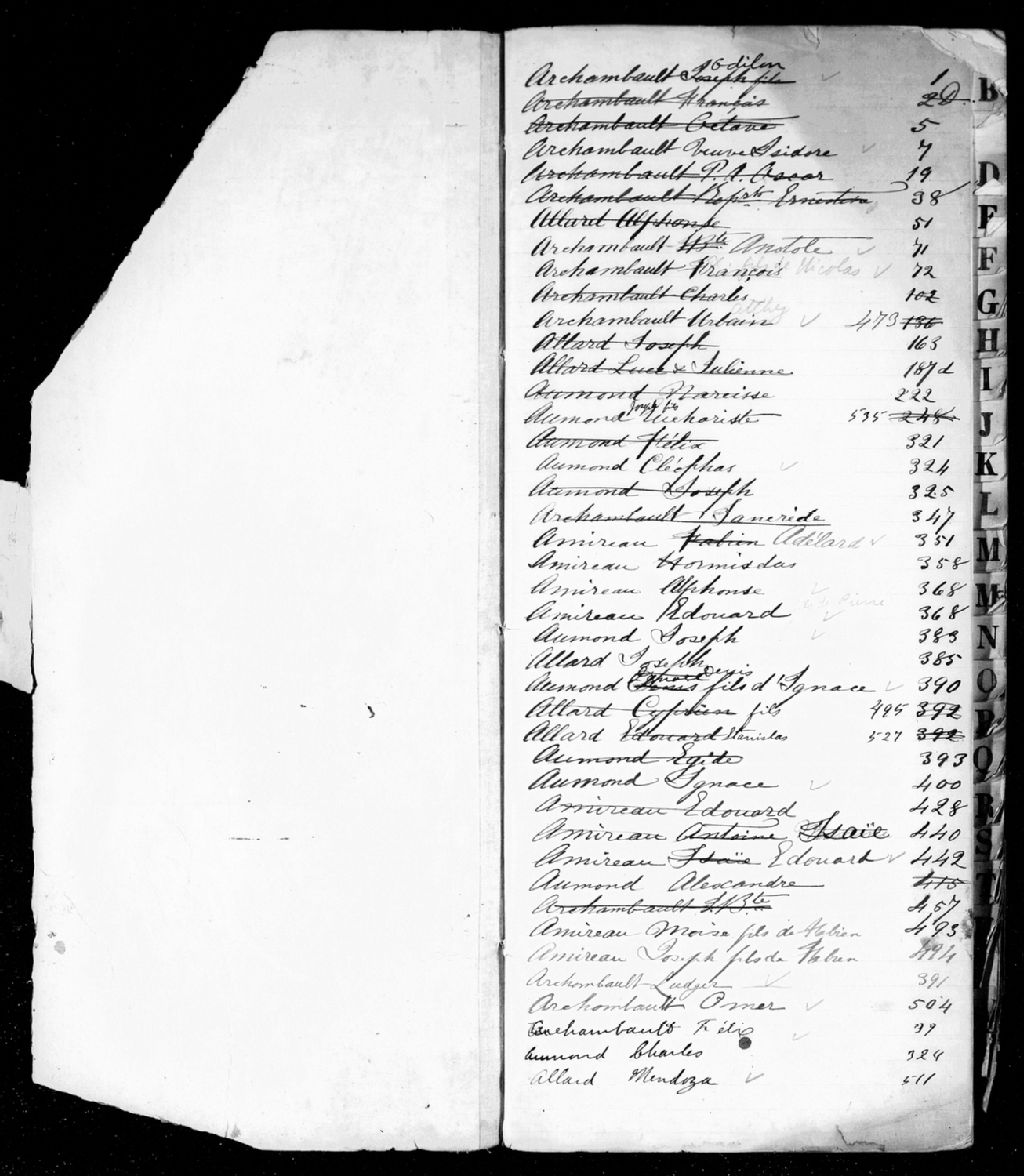 Odilon
Archambault Joseph fils 1
Archambault François 2D
Archambault Octave 5
Archambault Veuve Isidore 7
Archambault P. A. Oscar 19
Archambault Ernestine 38
Allard Alphonse 51
Archambault Anatole 71
Archambault François Nicolas 72
Archambault Charles 102
Archambault Urbain 473 136
Allard Joseph 163
Allard Luce & Julienne 187d
Aumond Narcisse 222
Joseph fils
Aumond Euchariste 535 248
Aumond Félix 321
Aumond Cléophas 324
Aumond Joseph 325
Archambault Tancride 347
Amireau Fabien Adélard 351
Amireau Hormisdas 358
Amireau Alphonse 368
Amireau Edouard 368
Aumond Joseph 383
Allard Joseph 385
Aumond Denis fils d'Ignace 390
Allard Cyprien fils 495 392
Allard Edouard Stanislas 527 392
Aumond Egide 393
Aumond Ignace 400
Amireau Edouard 428
Amireau Antoine Isaïe 440
Amireau Isaïe Edouard 442
Aumond Alexandre 415
Archambault J. Bte 457
Amireau Moise fils de Fabien 493
Amireau Joseph fils de Fabien 494
Archambault Ludger 391
Archambault Omer 504
Archambault Félix 39
Aumond Charles 324
Allard Mendoza 511
B
D
F
F
G
H
I
J
K
L
M
M
N
O
P
Q
R
S
T